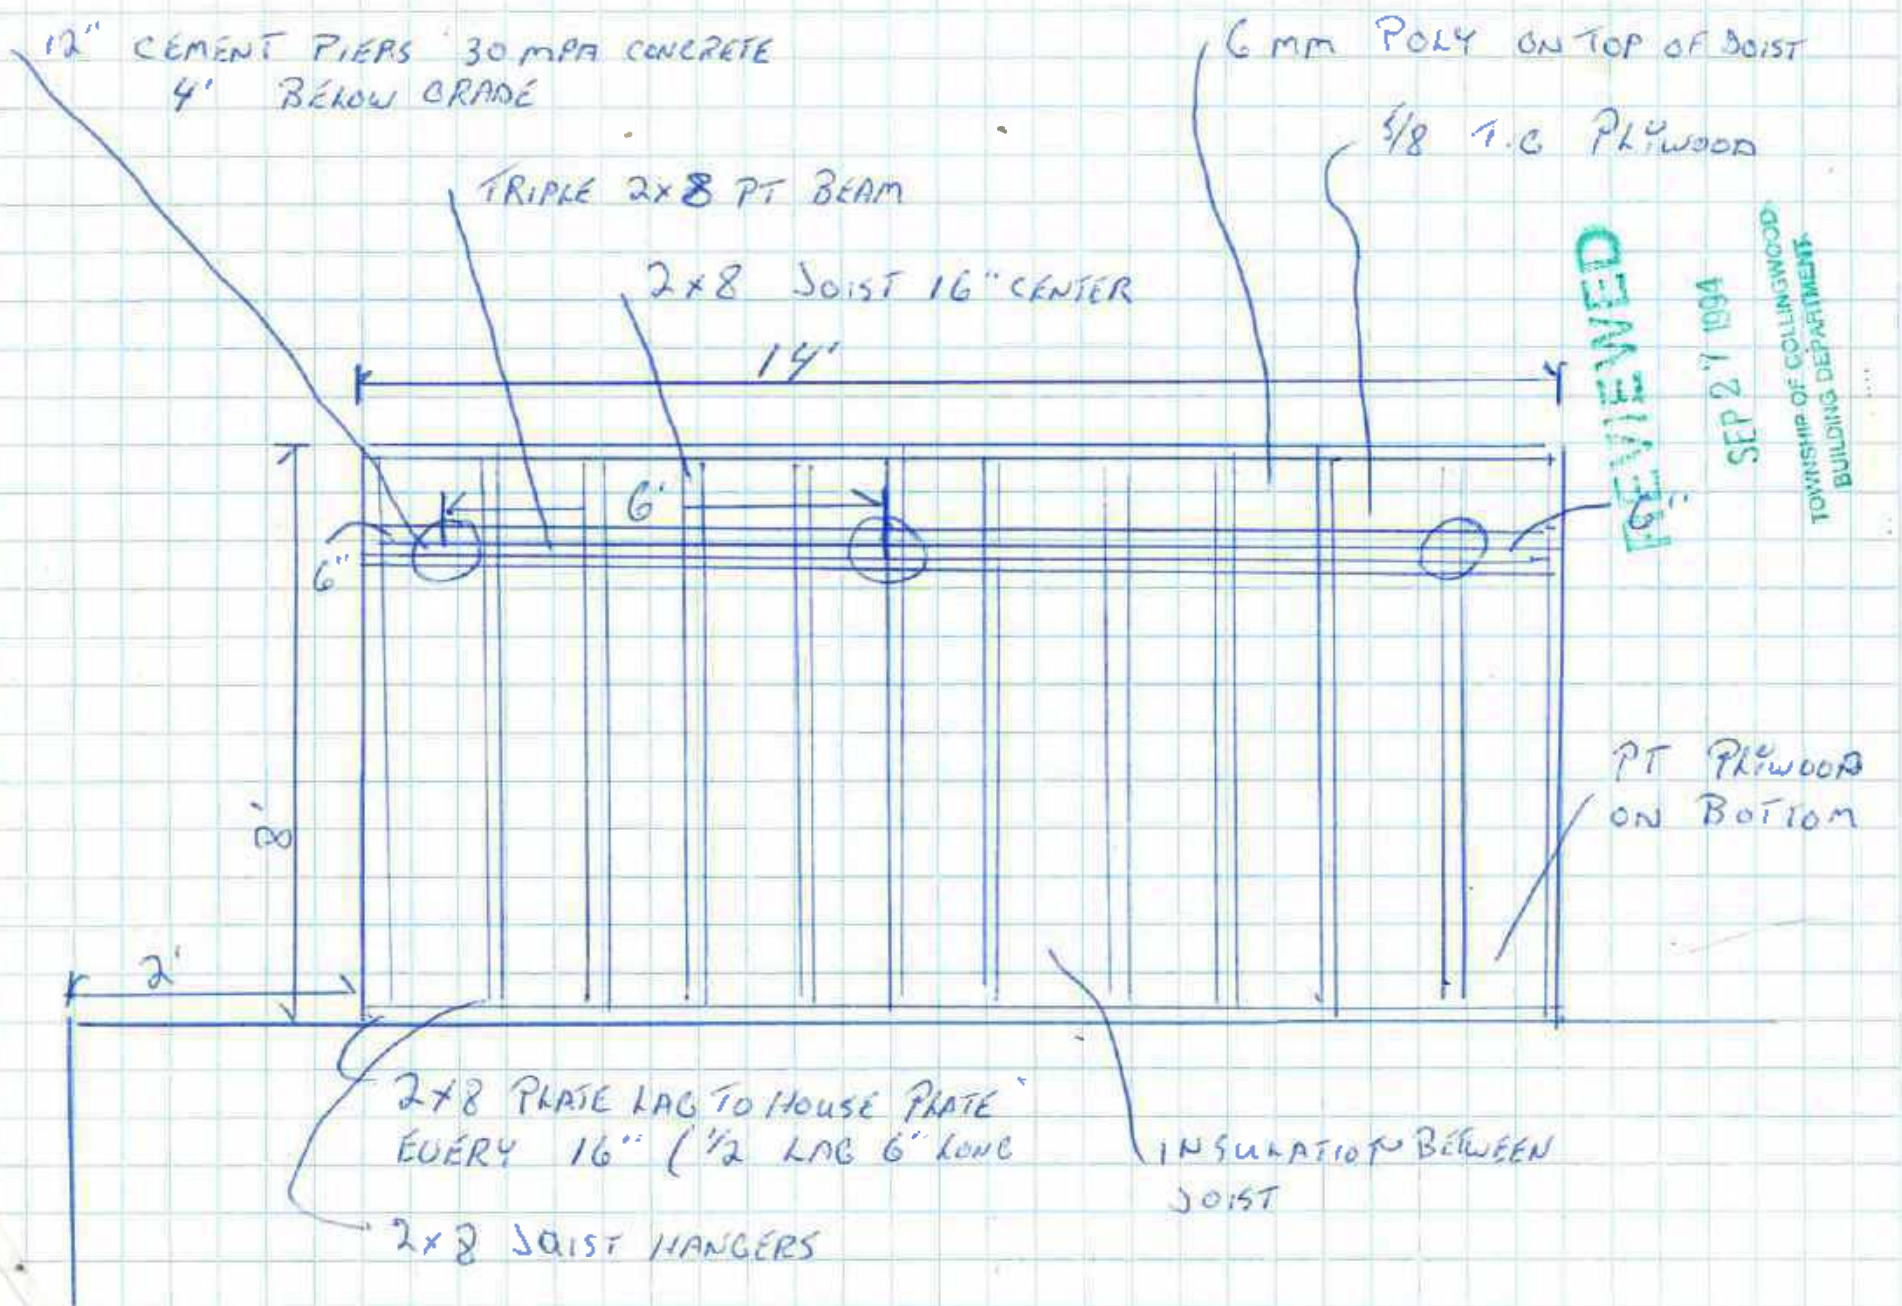 12" CEMENT PIERS 30 MPA CONCRETE
4' BELOW GRADE
6 mm POLY ON TOP OF JOIST
5/8 T.G PLYWOOD
TRIPLE 2x8 PT BEAM
2x8 JOIST 16" CENTER
14'
REVIEWED
SEP 27 1994
TOWNSHIP OF COLLINGWOOD
BUILDING DEPARTMENT
6'
6"
6"
8'
PT PLYWOOD
ON BOTTOM
2'
2x8 PLATE LAG TO HOUSE PLATE
EVERY 16" (1/2 LAG 6" LONG
INSULATION BETWEEN
JOIST
2x8 JOIST HANGERS